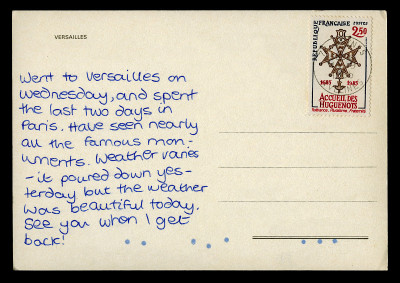 VERSAILLES
Went to Versailles on
Wednesday, and spent
the last two days in
Paris. Have seen nearly
all the famous mon-
uments. Weather varies
- it poured down yes-
terday but the weather
was beautiful today.
See you when I get
back!
RÉPUBLIQUE FRANÇAISE POSTES
2,50
1685 1985
ACCUEIL DES
HUGUENOTS
Tolérance, Pluralisme, Fraternité